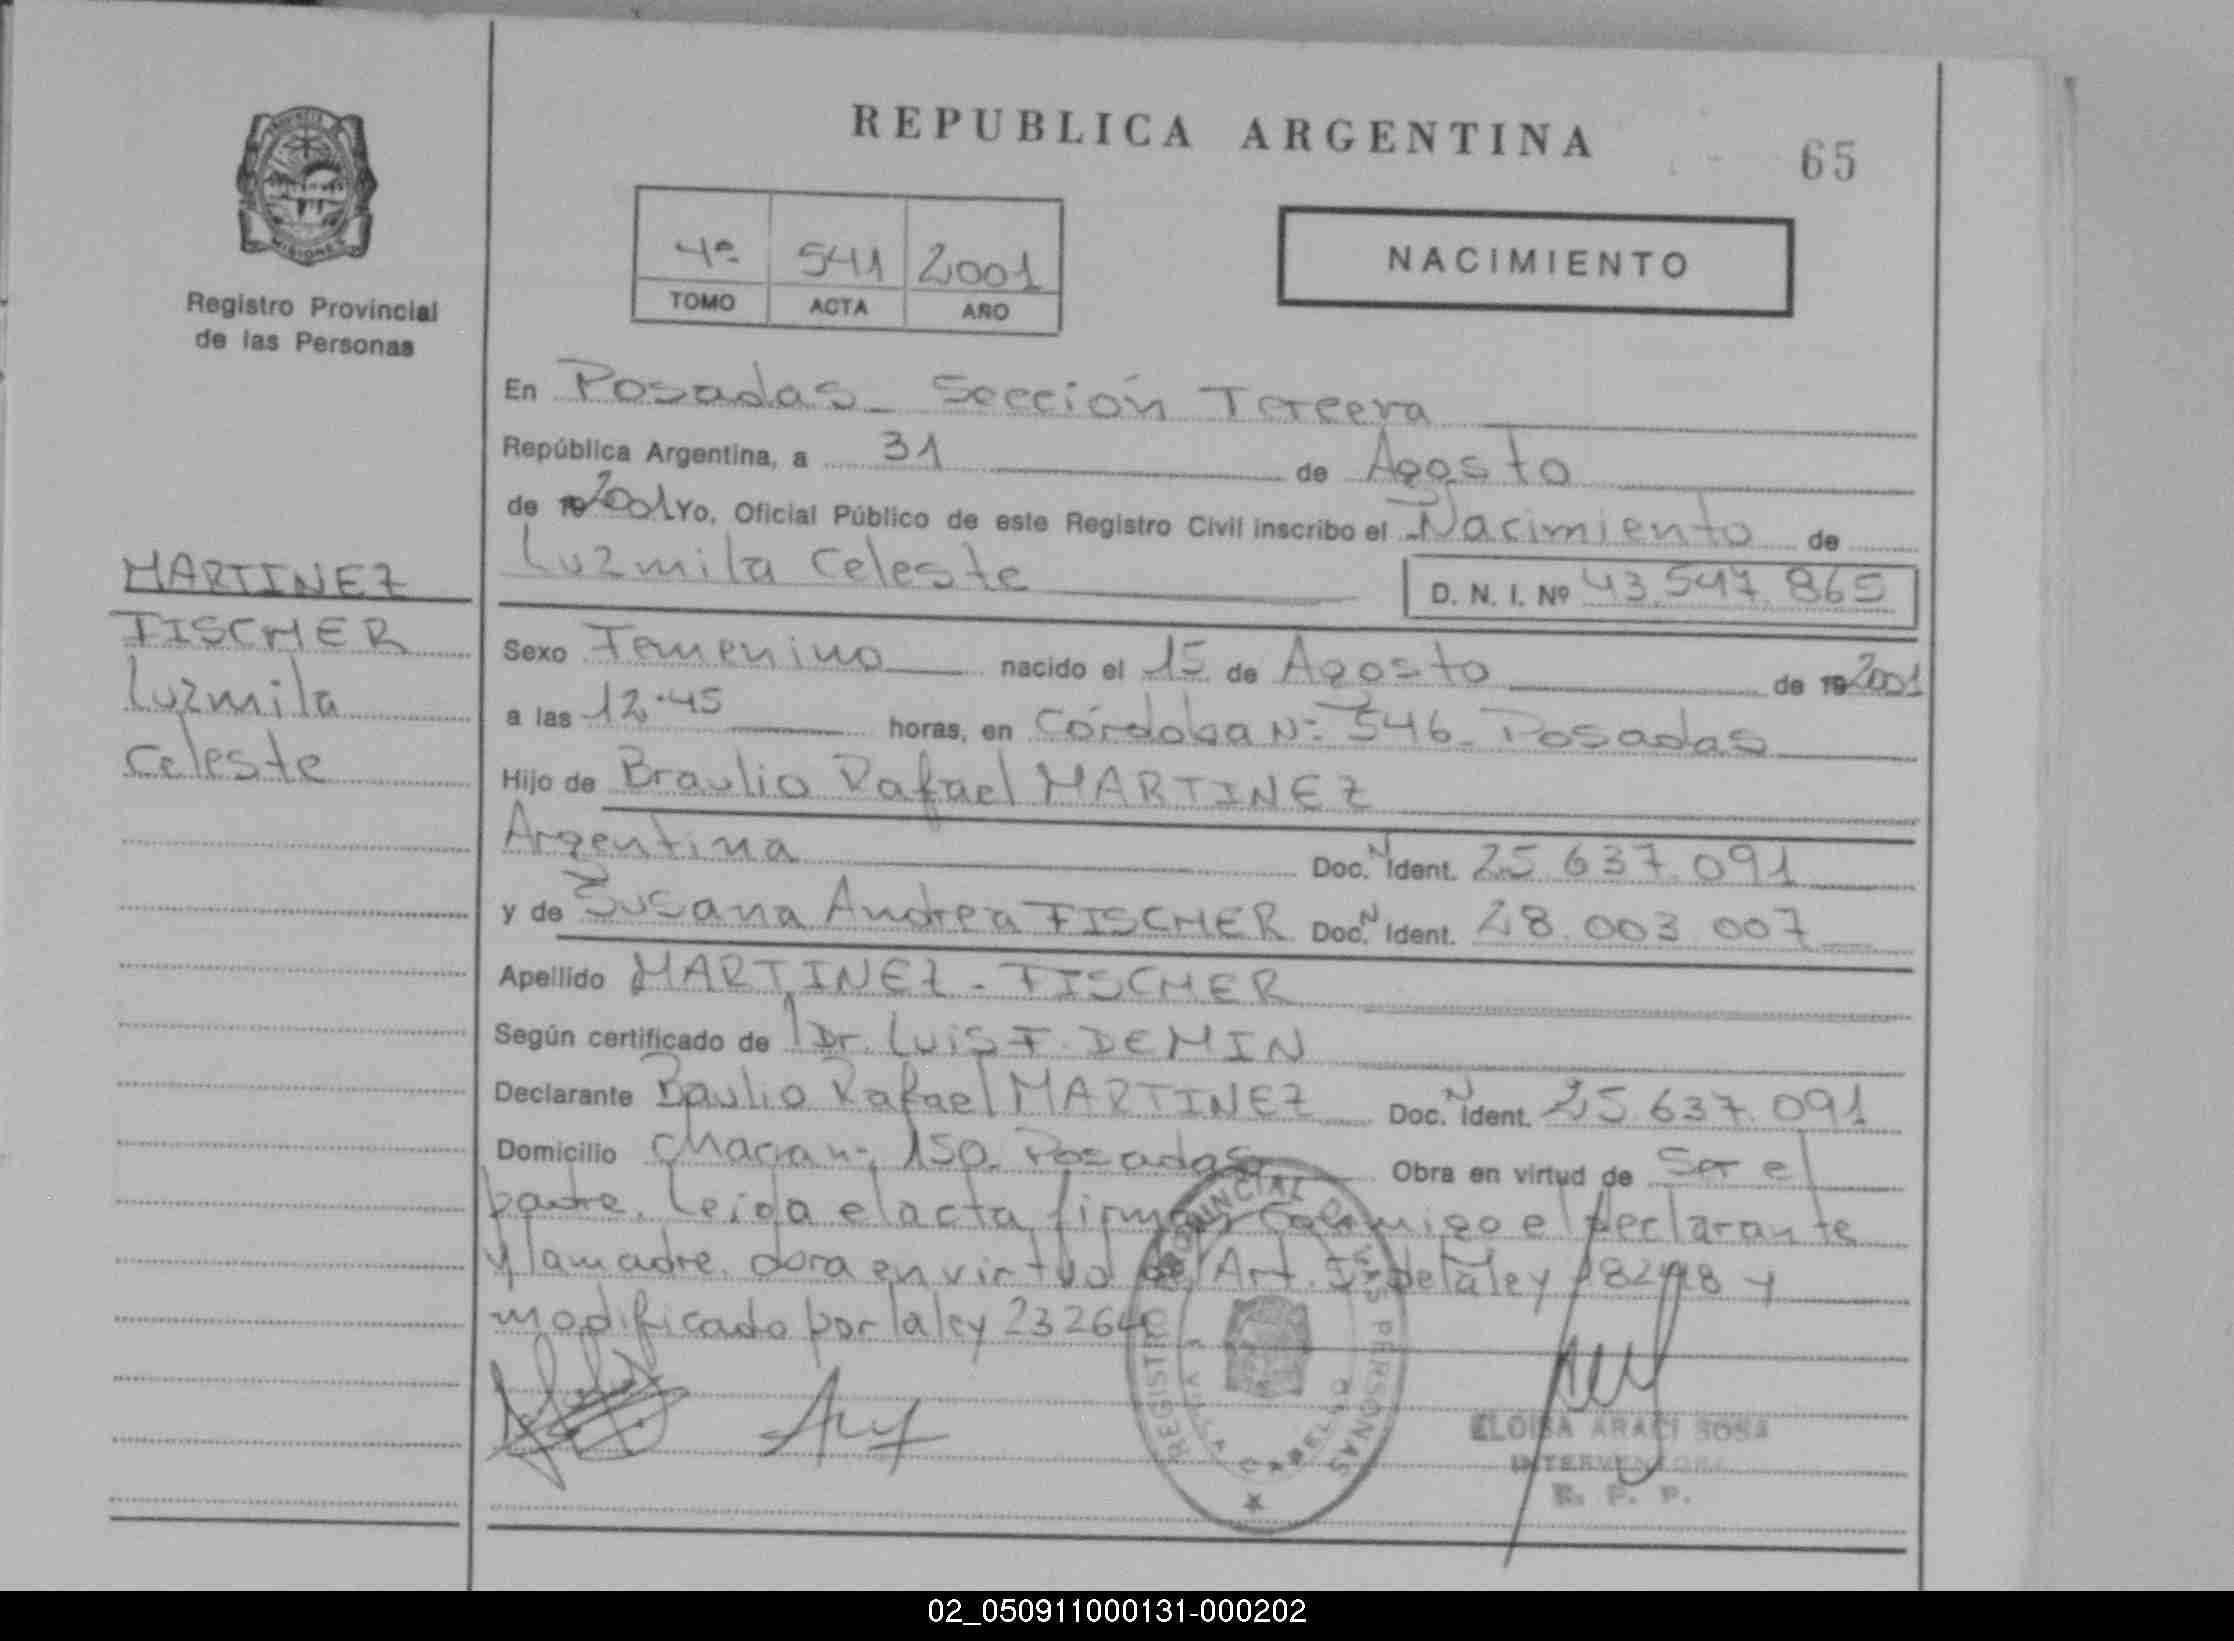 REPUBLICA ARGENTINA
65
4º 541 2001
TOMO ACTA AÑO
NACIMIENTO
MISIONES
Registro Provincial
de las Personas
MARTINEZ
FISCHER
Luzmila
Celeste
En Posadas - Sección Tercera
República Argentina, a 31 de Agosto
de 19 2001 Yo, Oficial Público de este Registro Civil inscribo el Nacimiento de
Luzmila Celeste D. N. I. Nº 43.547.865
Sexo Femenino nacido el 15 de Agosto de 19 2001
a las 12.45 horas, en Córdoba Nº 546 - Posadas
Hijo de Braulio Rafael MARTINEZ
Argentina Doc. N Ident. 25.637.091
y de Susana Andrea FISCHER Doc. N Ident. 28.003.007
Apellido MARTINEZ - FISCHER
Según certificado de Dr. Luis F. DEMIN
Declarante Baulio Rafael MARTINEZ Doc. N Ident. 25.637.091
Domicilio 150. Posadas Obra en virtud de Ser el
padre. Leida el acta firman conmigo el declarante
y la madre. obra en virtud del Art. de la ley 18248 y
modificado por la ley 23264
REGISTRO PROVINCIAL DE LAS PERSONAS
ELOISA ARACI SOSA
INTERVENTORA
R. P. P.
02_050911000131-000202